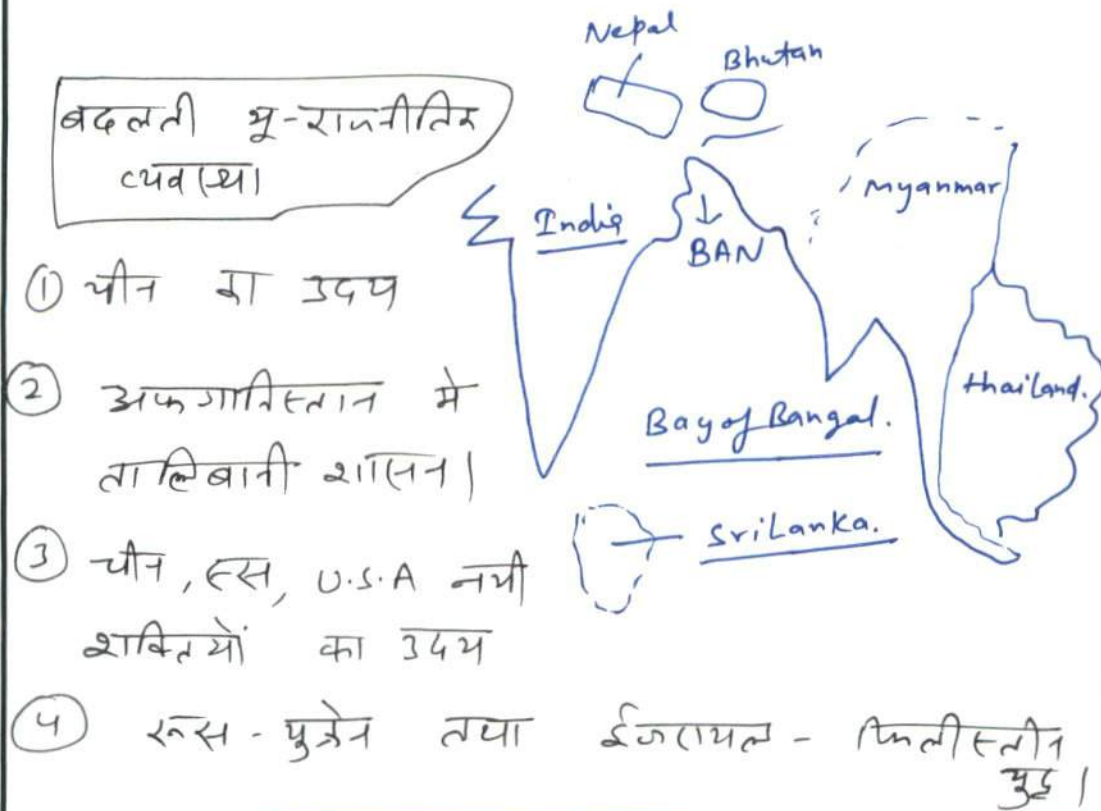 बदलती भू-राजनीतिक
व्यवस्था
① चीन का उदय
② अफगानिस्तान मे
तालिबानी शासन।
③ चीन, रूस, U.S.A नयी
शक्तियों का उदय
④ रूस - युक्रेन तथा ईजरायल - फिलीस्तीन
युद्ध।
Nepal
Bhutan
India
BAN
Myanmar
thailand.
Bay of Bangal.
SriLanka.